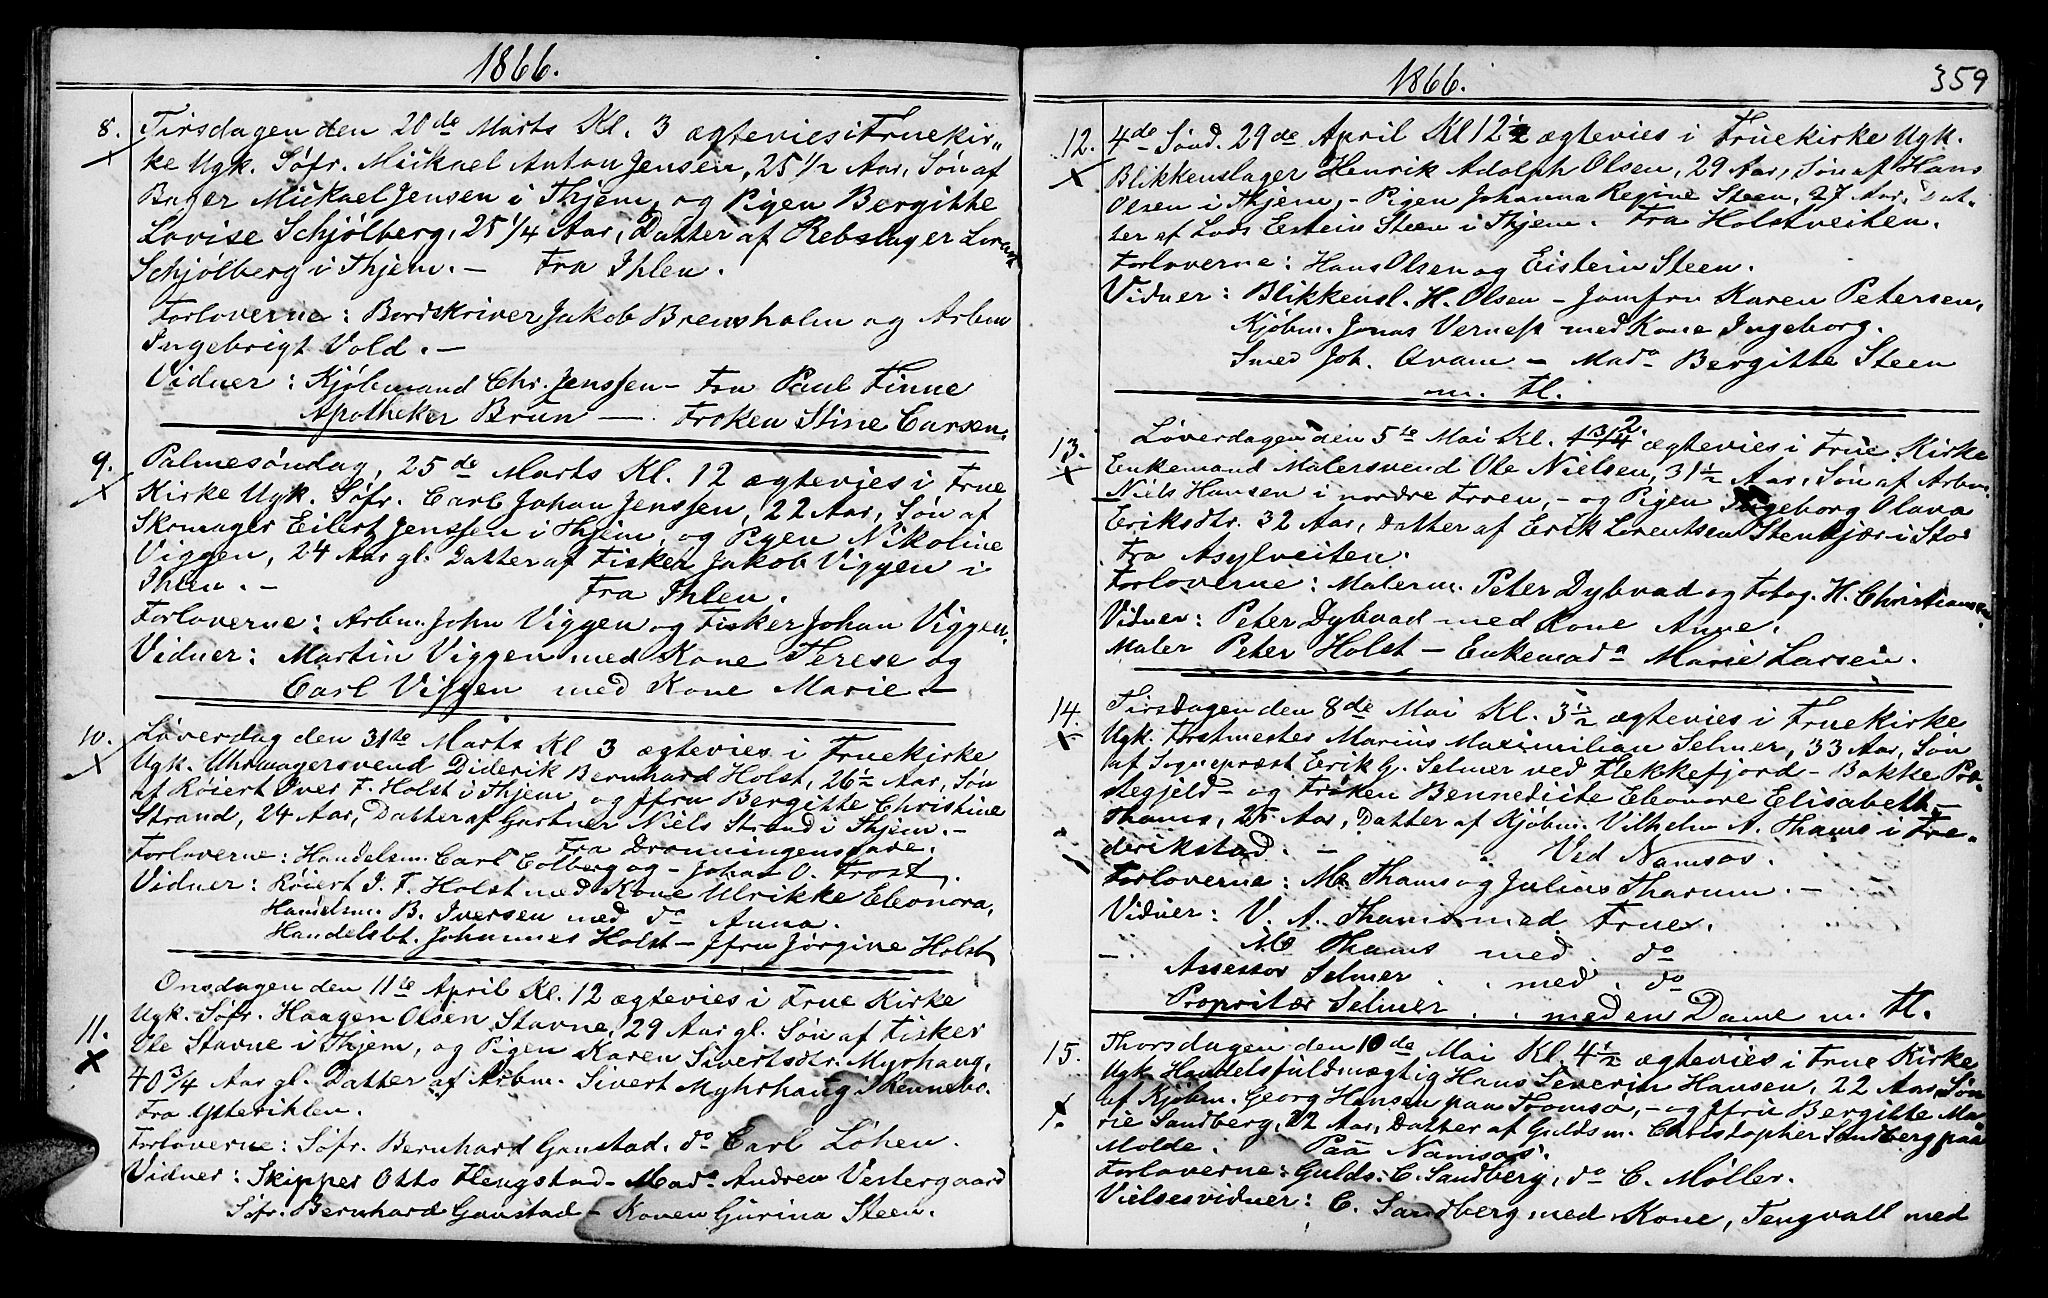 1866.
8. Tirsdagen den 20de Marts Kl. 3 ægtevies i Fruekir-
ke Ugk. Søfr. Mickael Anton Jensen, 25 1/2 Aar, Søn af
Bager Mickael Jensen i Thjem, og Pigen Bergitte
Lovise Schjølberg, 25 1/4 Aar, Datter af Rebslager
Schjølberg i Thjem. — Fra Ihlen.
Forloverne: Bordskriver Jakob Brensholm og Arbm
Ingebrigt Vold. —
Vidner: Kjøbmand Chr. Jenssen — Fru Paul Finne
Apotheker Brun — Frøken Stine Carsen.
9. Palmesøndag, 25de Marts Kl. 12 ægtevies i Frue
Kirke Ugk. Søfr. Carl Johan Jenssen, 22 Aar, Søn af
Skomager Eilert Jenssen i Thjem, og Pigen Nikoline
Viggen, 24 Aar gl. Datter af Fisker Jakob Viggen i
Ihlen. — Fra Ihlen.
Forloverne: Arbm. John Viggen og Fisker Johan Viggen.
Vidner: Martin Viggen med Kone Terese og
Carl Viggen med Kone Marie —
10. Løverdag den 31te Marts Kl 3 ægtevies i Fruekirke
Ugk. Uhrmagersvend Diderik Bernhard Holst, 26 1/2 Aar, Søn
af Røiert Over F. Holst i Thjem, og Jfru Bergitte Christine
Strand, 24 Aar, Datter af Gartner Niels Strand i Thjem. —
Fra Dronningensgave.
Forloverne: Handelsm. Carl Colberg og — Johan O. Frost.
Vidner: Røiert I. F. Holst med Kone Ulrikke Eleonora,
Handelsm. B. Iversen med do Anna.
Handelsbt. Johannes Holst — Jfru Jørgine Holst
11. Onsdagen den 11te April Kl. 12 ægtevies i Frue Kirke
Ugk. Søfr. Haagen Olsen Stavne, 29 Aar gl. Søn af Fisker
Ole Stavne i Thjem, og Pigen Karen Sivertsdtr. Myrhaug,
40 3/4 Aar gl. Datter af Arbm. Sivert Myhrhaug i Rennebo.
Fra Ytterihlen.
Forloverne: Søfr. Bernhard Ganstad. do Carl Løhen.
Vidner: Skipper Otto Flengstad — Mado Andrea Vestergaard
Søfr. Bernhard Ganstad — Konen Gurina Steen.
1866. 359
12. 4de Sønd. 29de April Kl 12 1/2 ægtevies i Fruekirke Ugk.
Blikkenslager Henrik Adolph Olsen, 29 Aar, Søn af Hans
Olsen i Thjem, — Pigen Johanna Regine Steen, 27 Aar, Dat-
ter af Lods Eistein Steen i Thjem. Fra Holstveiten.
Forloverne: Hans Olsen og Eistein Steen.
Vidner: Blikkensl. H. Olsen — Jomfru Karen Petersen,
Kjøbm. Jonas Verness med Kone Ingeborg.
Smed Joh. Qvam — Mado Bergitte Steen
m. Fl.
13. Løverdagen den 5te Mai Kl. 2. ægtevies i Frue Kirke
Enkemand Malersvend Ole Nielsen, 31 1/2 Aar, Søn af Arbm.
Niels Hansen i nordre Froen, — og Pigen Ingeborg Olava
Eriksdtr. 32 Aar, Datter af Erik Lorentsen Stenkjær i Stod
Fra Asylveiten.
Forloverne: Malerm. Peter Dybvad og Fotog. H. Christiansen.
Vidner: Peter Dybvad med Kone Anne.
Maler Peter Holst — Enkemado Marie Larsen.
14. Tirsdagen den 8de Mai Kl. 3 1/2 ægtevies i Fruekirke
Ugk. Forstmester Marius Maximilian Selmer, 33 Aar, Søn
af Sognepræst Erik G. Selmer ved Flekkefjord — Bakke Præ-
stegjeld — og Frøken Bennedicte Eleonore Elisabeth
Thams, 25 Aar, Datter af Kjøbm. Vilhelm A. Thams i Fre-
derikstad. — Ved Namsos.
Forloverne: M. Thams og Julius Tharum. —
Vidner: V. A. Thams med Frue.
—. M. Thams med. do
Assessor Selmer . . med . do
Propritær Selmer . . med en Dame m. Fl.
15. Thorsdagen den 10de Mai Kl. 4 1/2 ægtevies i Frue Kirke
Ugk Handelsfuldmægtig Hans Severin Hansen, 22 Aar, Søn
af Kjøbm. Georg Hansen paa Tromsø, — og Jfru Bergitte Ma-
rie Sandberg, 22 Aar, Datter af Guldsm. Christopher Sandberg paa
Molde. Paa Namsos.
Forloverne: Gulds: C. Sandberg, do C. Møller.
Vielsesvidner: C. Sandberg med Kone, Tengvall med